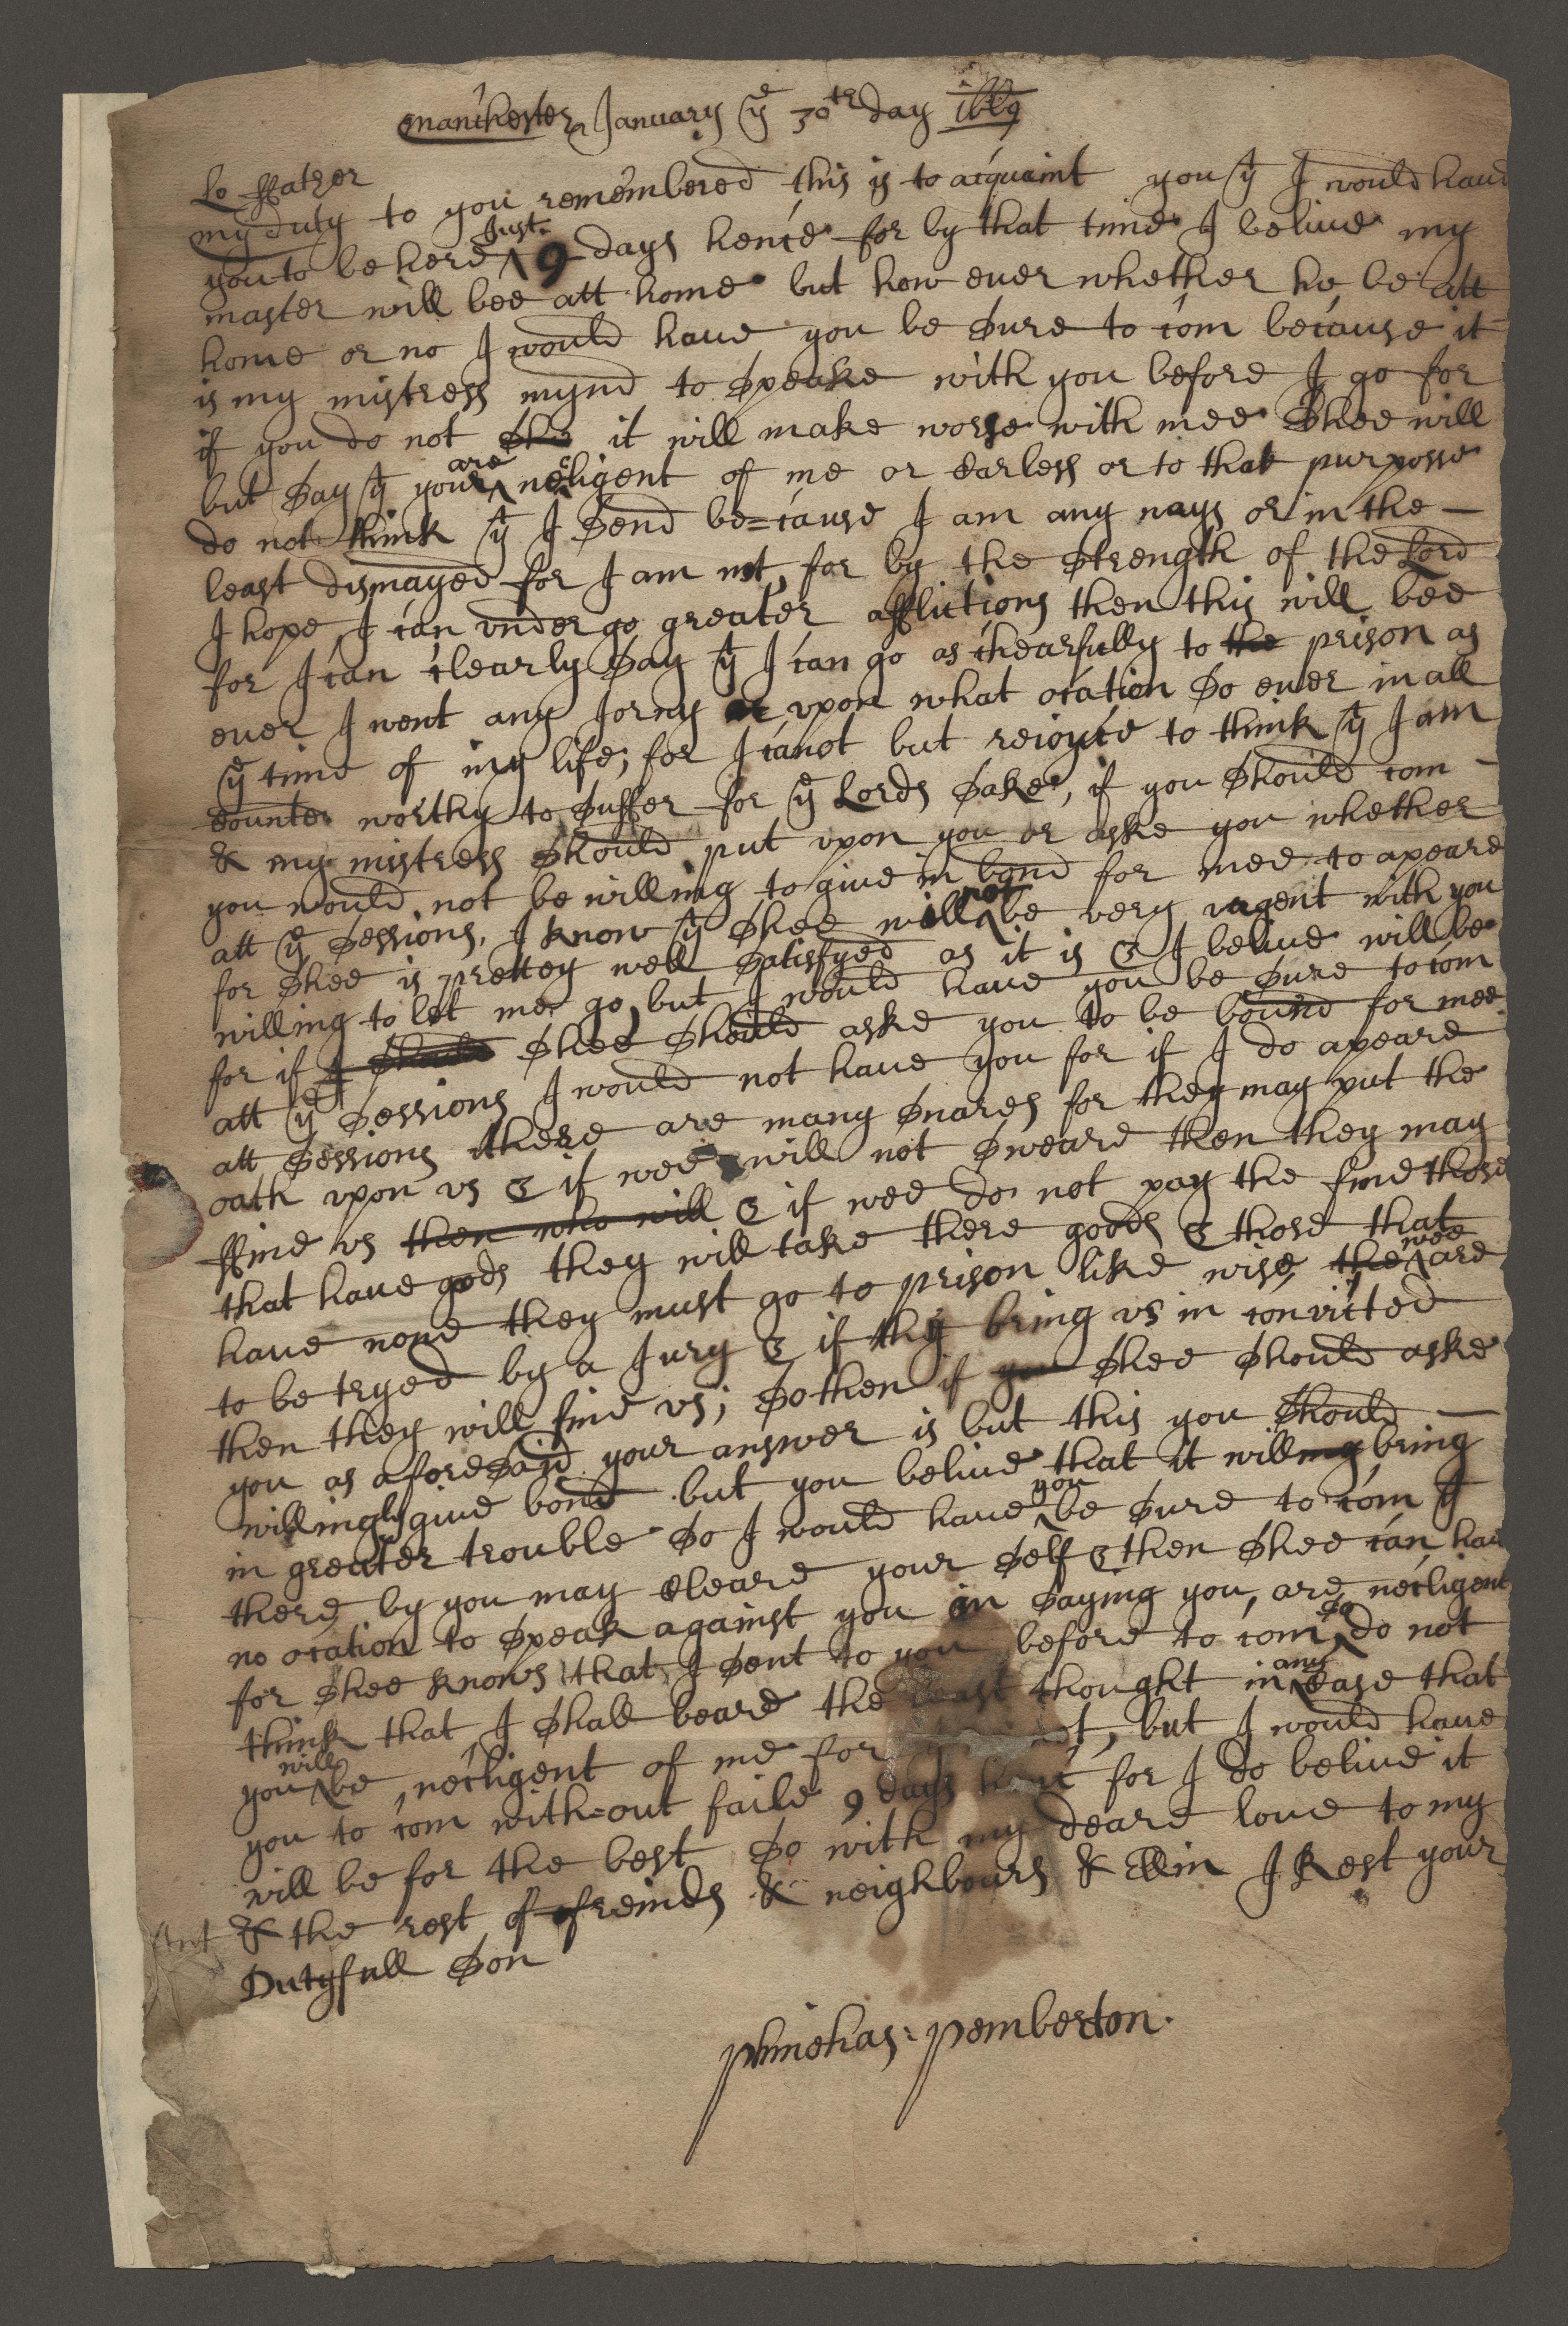 Manchester January ye 30th day 1669
Lo ffather
my duty to you remembered this is to acquaint you yt I would have
you to be here Just 9 days hence for by that time I belive my
master will bee att home but how euer whether he be att
home or no I would haue you be sure to com because it
is my mistress mynd to speake with you before I go for
if you do not she it will make worse with mee Shee will
but say yt your are necligent of me or Carless or to that purposse
do not think yt I send be=cause I am any ways or in the
least dismayed for I am not, for by the strength of the Lord
I hope I can vnder go greater afflictions then this will bee
for I can clearly say yt I can go as chearfully to the prison as
euer I went any Jorny or vpon what ocation so euer in all
ye time of my life; for I canot but reioyce to think yt I am
Counter worthy to suffer for ye Lords sake, if you should com
& my mistress should put vpon you or aske you whether
you would not be willing to giue in bond for mee to apeare
att ye sessions, I know yt shee will not be very vrgent with you
for shee is prettey well satisfyed as it is & I beliue will be
willing to let me go, but I would haue you be sure to com
for if I should shee should aske you to be bound for mee
att ye sessions I would not haue you for if I do apeare
att sessions there are many snares for they may put the
oath vpon vs & if wee will not sweare then they may
ffine vs then who will & if wee do not pay the fine those
that haue gods they will take there goods & those that
haue none they must go to prison like wise, the wee are
to be tryed by a Jury & if thy bring vs in convicted
then they will fine vs; so then if you shee should aske
you as aforesaid your answer is but this you should
willingly giue bond but you beliue that it will my bring
in greater trouble so I would haue you be sure to com yt
there by you may Cleare your self & then shee can hau
no ocation to speak against you in saying you, are necligent
for shee knows that I sent to you before to com so do not
think that I shall beare the least thought in any Case that
you will be necligent of me for I t, but I would haue
you to com with=out faile 9 days henc for I do beliue it
will be for the best so with my deare loue to my
Ant & the rest of freinds & neighbours & Ellin I Rest your
Dutyfull son
phinehas: pemberton.